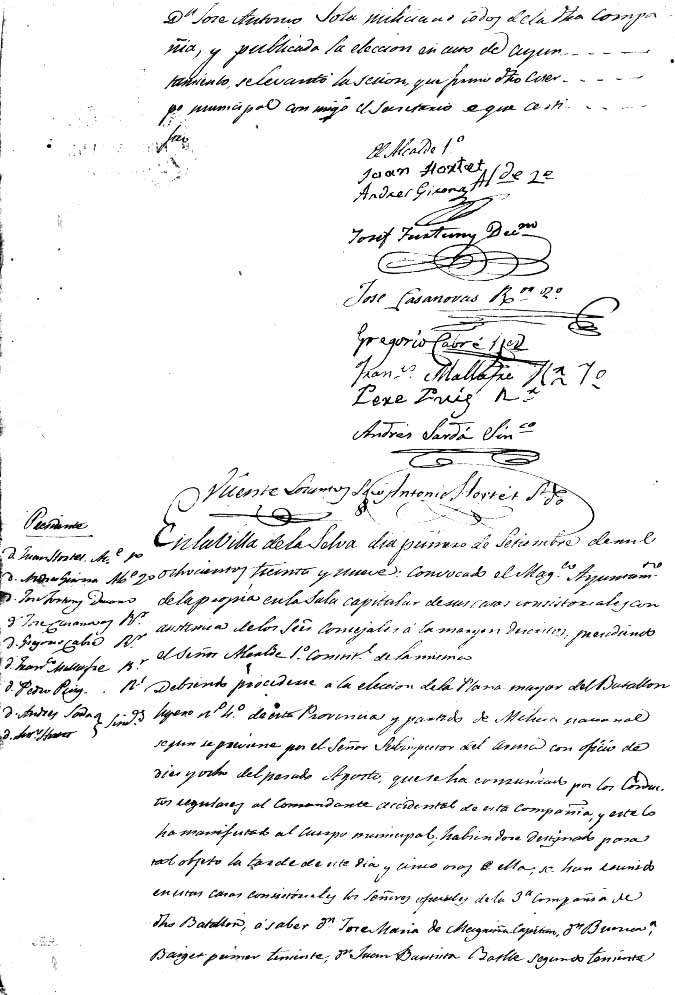 Dn Jose Antonio Sola miliciano todos de la dha compa
ñia, y publicada la eleccion en auto de ayun
tamiento, se levantó la secion, que firmó dho Cuer
po municipal con migo el Secretario e que certi
fico
El Alcalde 1.º
Joan Hortet
Andres Girona Alde 2º
Josef Fortuny Decno
Jose Casanovas Ror 2º
Gregorio Cabré
Franco Mallafré Rr 7º
Pere Puig Rr
Andres Sardá Sinco
Vicente Antonio Hortet Sdo
En la Villa de la Selva dia primero de Setiembre de mil
ochocientos treinta y nueve: convocado el Mago Ayuntamto
de la propia en la Sala capitular de sus casas consistoriales con
asistencia de los Sres Concejales á la margen descritos, presidiendo
el Señor Alcalde 1.º Constl de la misma
Presidente
D. Juan Hortet Al.e po
D. Andres Girona Al.e 2º
D. Jose Fortuny Decano
D. Jose Casanovas Rr
D. Gregorio Cabré Rr
D. Franco Mallafre Rr
D. Pedro Puig Rr
D. Andres Sarda
D. Anto Hortet Sindos
Debiendo procederse á la eleccion de la Plana mayor del Batallon
ligero nº 4.º de esta Provincia y partido de Milicia nacional
segun se previene por el Señor Subinspector del arma con oficio de
dies y ocho del pasado Agosto, que se ha comunicado por los Conduc
tos regulares al Comandante accidental de esta Compañia, y este lo
ha manifestado al Cuerpo municipal; habiendose designado para
tal objeto la tarde de este dia y cinco oras de ella, se han reunido
en estas casas consistoriales los Señores oficiales de la 3ª Compañia de
dho Batallon, á saber Dn Jose Maria de Capitan, Dn Buenava
Baiget primer teniente, Dn Juan Bautista Batlle segundo teniente